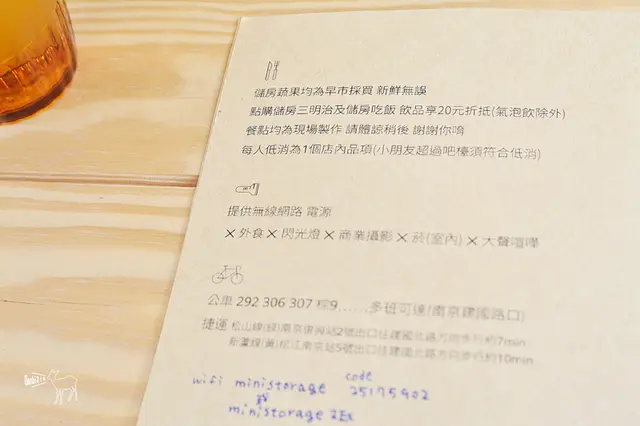 儲房蔬果均為早市採買 新鮮無誤
點購儲房三明治及儲房吃飯 飲品享20元折抵(氣泡飲除外)
餐點均為現場製作 請體諒稍後 謝謝你唷
每人低消為1個店內品項(小朋友超過吧檯須符合低消)
提供無線網路 電源
×外食×閃光燈×商業攝影×菸(室內)×大聲喧嘩
公車 292 306 307 棕9......多班可達(南京建國路口)
捷運 松山線(綠)南京復興站2號出口往建國北路方向步行約7min
新蘆線(黃)松江南京站5號出口往建國北路方向步行約10min
wifi ministorage code 25175902
ministorage 2Ex